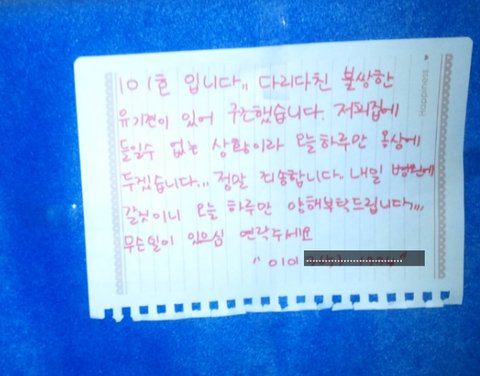 Happiness
101호 입니다,, 다리다친 불쌍한
유기견이 있어 구조했습니다. 저희집에
들일수 없는 상황이라 오늘하루만 옥상에
두겠습니다... 정말 죄송합니다.. 내일 병원에
갈것이니 오늘 하루만 양해부탁드립니다,,,
무슨일이 있으심 연락주세요
"010